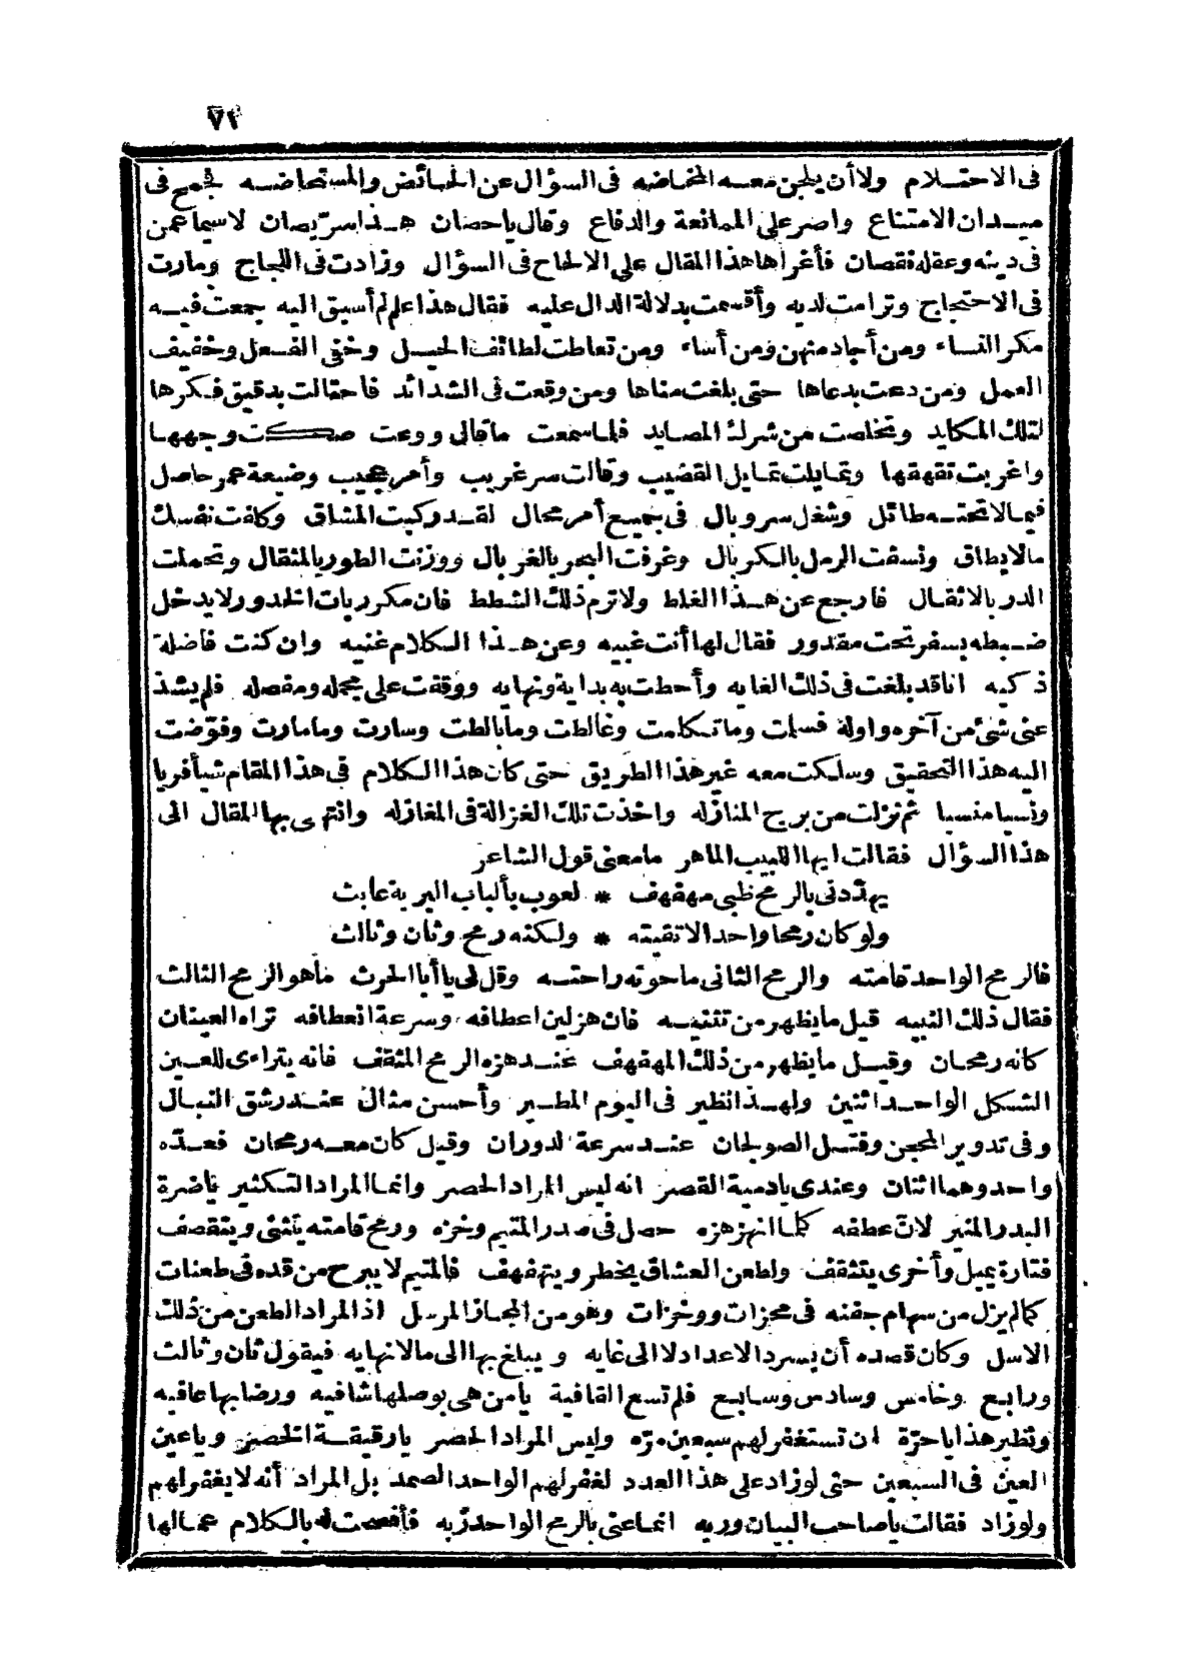 ٧٢
فى الاحتلام ولا أن يلجن معه المخاضه فى السؤال عن الحائض والمستحاضه فجمح فى
ميدان الامتناع واصر على الممانعة والدفاع وقال ياحصان هذا سر يصان لاسيما عمن
فى دينه وعقله نقصان فأغراها هذا المقال على الالحاح فى السؤال وزادت فى اللجاج ومارت
فى الاحتجاج وترامت لديه وأقسمت بدلالة الدال عليه فقال هذا علم لم أسبق اليه جمعت فيه
مكر النساء ومن أجاد منهن ومن أساء ومن تعاطت لطائف الحيل وخفى الفعل وخفيف
العمل ومن دعت بدعاها حتى بلغت مناها ومن وقعت فى الشدائد فاحتالت بدقيق فكرها
لتلك المكايد وتخلصت من شرك المصايد فلما سمعت ماقال ووعت صكت وجهها
واغربت تقهقها وتمايلت تمايل القضيب وقالت سر غريب وأمر عجيب وضيعة عمر حاصل
فيما لا تحته طائل وشغل سر وبال فى جميع أمر محال لقد ركبت المشاق وكلفت نفسك
مالا يطاق ونسفت الرمل بالكربال وغرفت البحر بالغربال ووزنت الطور بالمثقال وتحملت
الدر بالاثقال فارجع عن هذا الغلط ولا ترم ذلك الشطط فان مكر ربات الخدور لا يدخل
ضبطه بسفر تحت مقدور فقال لها أنت غبيه وعن هذا الكلام غنيه وان كنت فاضلة
ذكيه اناقد بلغت فى ذلك الغايه وأحطت به بداية ونهايه ووقفت على مجمله ومفصله فلم يشذ
عنى شئ من آخره واوله فسلمت وماتكلمت وغالطت ومابالطت وسارت ومامارت وفوّضت
اليه هذا التحقيق وسلكت معه غير هذا الطريق حتى كان هذا الكلام فى هذا المقام شيأ فريا
ونسيا منسيا ثم نزلت من برج المنازله واخذت تلك الغزالة فى المغازله وانتهى بها المقال الى
هذا السؤال فقالت ايها اللبيب الماهر مامعنى قول الشاعر
يهدّدنى بالرمح ظبى مهفهف * لعوب بألباب البرية عابث
ولو كان رمحا واحدا لاتقيته * ولكنه رمح وثان وثالث
فالرمح الواحد قامته والرمح الثانى ماحوته راحته وقل لى ياأبا الحرث ماهو الرمح الثالث
فقال ذلك النبيه قيل مايظهر من تثنيه فان هز لين اعطافه وسرعة انعطافه تراه العينان
كانه رمحان وقيل مايظهر من ذلك المهفهف عند هزه الرمح المثقف فانه يتراءى للعين
الشكل الواحد اثنين ولهذا نظير فى اليوم المطير وأحسن مثال عند رشق النبال
وفى تدوير المحجن وفتل الصولجان عند سرعة الدوران وقيل كان معه رمحان فعدّه
واحد وهما اثنان وعندى يادمية القصر انه ليس المراد الحصر وانما المراد التكثير ياضرة
البدر المنير لانّ عطفه كلما انهز هزه حصل فى صدر المتيم وخزه ورمح قامته يتثنى ويتقصف
فتارة يميل وأخرى يتثقف ولطعن العشاق يخطر ويتهفهف فالمتيم لا يبرح من قده فى طعنات
كما لم يزل من سهام جفنه فى مجزات ووخزات وهو من المجاز المرسل اذ المراد الطعن من ذلك
الاسل وكان قصده أن يسرد الاعداد لا الى غايه ويبلغ بها الى مالانهايه فيقول ثان وثالث
ورابع وخامس وسادس وسابع فلم تسع القافية يامن هى بوصلها شافيه ورضابها عافيه
ونظير هذا ياحرّة ان تستغفر لهم سبعين مرّه وليس المراد الحصر يارقيقة الخصر وياعين
العين فى السبعين حتى لو زاد على هذا العدد لغفر لهم الواحد الصمد بل المراد أنه لا يغفر لهم
ولو زاد فقالت ياصاحب البيان وربه انما عنى بالرمح الواحد زبه فأفصحت له بالكلام عمالها